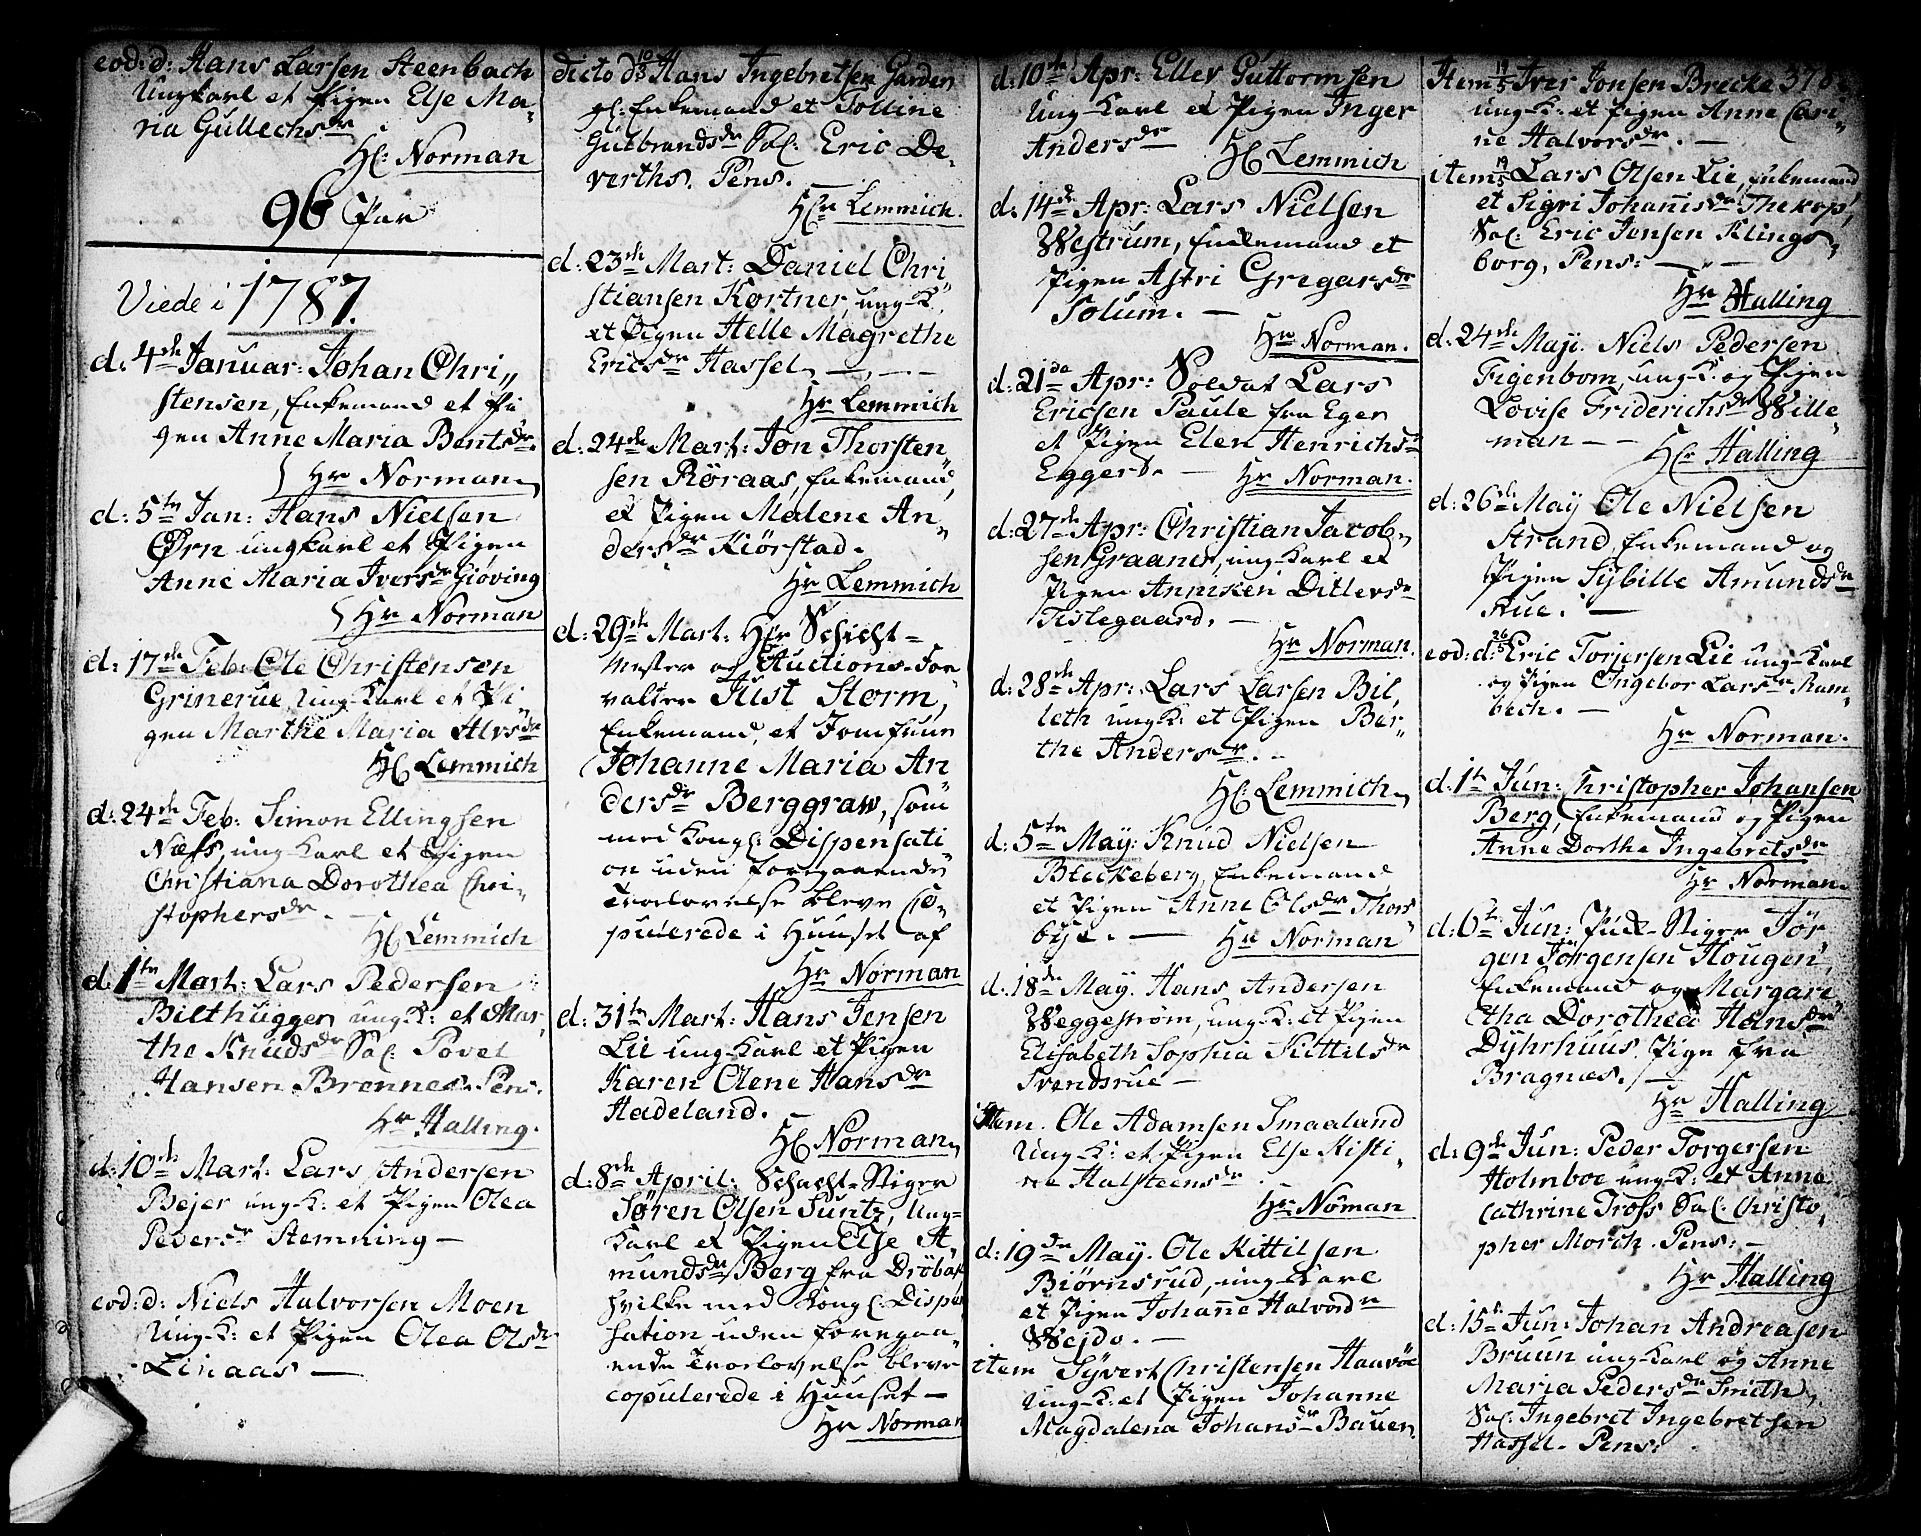 eod: d: Hans Larsen Steenbach
Ungkarl et Pigen Else Ma-
ria Gullechsdr
Hl: Norman
96 Par
Viede i 1787.
d: 4de Januar: Johan Chri-
stensen, Enkemand et Pi-
gen Anne Maria Bentsdr.
Hr Norman
d: 5te Jan: Hans Nielsen
Ørn ungkarl et Pigen
Anne Maria Iversdr Giöving
Hr Norman
d: 17de Feb: Ole Christensen
Grinerue, Ung-Karl et Pi-
gen Marthe Maria Alvsdr
Hl Lemmich
d: 24de Feb: Simon Ellingsen
Næss, ung-Karl et Pigen
Christiana Dorothea Chri-
stophersdr. —
Hl Lemmich
d: 1te Mart: Lars Pedersen
Bilthugger ung-K: et Mar-
the Knudsdr Sal: Povel
Hansen Brennes Pens.
Hr Halling.
d: 10de Mart: Lars Andersen
Bejer ung-K: et Pigen Olea
Pedersdr Stemning —
eod: d: Niels Halvorsen Moen
Ung-K: et Pigen Olea Olsdr
Linaas —
dicto d 10/3 Hans Ingebretsen Garden
gl: Enkemand et Tolline
Gulbrandsdr Sal: Eric De-
verths. Pens.
Hr Lemmich.
d: 23de Mart: Daniel Chri-
stiansen Kortner, ung-K
et Pigen Helle Magrethe
Ericsdr Hassel, — , —
Hr Lemmich
d: 24de Mart: Jon Thorsten-
sen Röraas, Enkemand,
et Pigen Malene An-
dersdr Kiörstad.
Hr Lemmich
d: 29de Mart: Hr Schicht-
mester og Auctions-For-
valter Just Storm,
Enkemand, et Jomfrue
Johanne Maria An-
dersdr Berggraw, som
med Kongl: Dispensati-
on uden foregaaende
Trolovelse bleve Co-
pulerede i Huuset af
Hr Norman
d: 31te Mart: Hans Jensen
Lie ung-Karl et Pigen
Karen Olene Hansdr
Hadeland.
Hl Norman
d: 8de April: Schacht-Stiger
Søren Olsen Suntz, Ung-
Karl et Pigen Else A-
mundsdr Berg fra Dröbak
hvilke med Kongl: Dispen-
sation uden foregaa-
ende Trolovelse bleve
copulerede i Huuset —
Hr Norman
d: 10de Apr: Eller Guttormsen
Ung-Karl et Pigen Inger
Andersdr
Hl Lemmich
d. 14de Apr: Lars Nielsen
Westrum, Enkemand et
Pigen Astri Gregarsdr
Solum. —
Hr Norman.
d: 21de Apr: Soldat Lars
Ericsen Paule fra Eger
et Pigen Elen Henrichsdr
Eggers. —
Hr Norman.
d: 27de Apr: Christian Jacob-
sen Graaner, ung-Karl et
Pigen Anniken Ditlevsdr
Tislegaard. —
Hr Norman.
d: 28de Apr: Lars Larsen Bil-
leth ung K: et Pigen Ber-
the Andersdr. -
Hl: Lemmich
d: 5te May: Knud Nielsen
Bleckeberg, Enkemand
et Pigen Anne Olsdr Thors
bye. —
Hr Norman
d. 18de May. Hans Andersen
Weggestrøm, ung-K: et Pigen
Elisabeth Sophia Kittilsdr
Svendsrue —
Item. Ole Adamsen Smaaland
Ung-K: et Pigen Else Kisti-
ne Halsteensdr.
Hr Norman
d: 19de May. Ole Kittilsen
Biørnsrud, ung-Karl
et Pigen Johanne Halvordr
Wejdo. —
item Syvert Christensen Haavöe
Ung-K: et Pigen Johanne
Magdalena Johansdr Bauer.
Item 19/5 Iver Jonsen Brecke 378
ung-K: et Pigen Anne Cari-
ne Halvorsdr. —
item 19/5 Lars Olsen Lie, Enkemand
et Sigri Johannisdr Thekop,
Sal: Eric Jensen Klings-
borg, Pens: —
Hr Halling
d: 24de Maji. Niels Pedersen
Figenbom, ung-K. og Pigen
Lovise Friderichsdr Wille-
man — —
Hr Halling
d: 26de May Ole Nielsen
Strand, Enkemand og
Pigen Sybille Amundsdr
Rue. —
eod: d: 26/5 Eric Torjersen Lie ung-Karl
og Pigen Ingebor Larsdr Rum-
bech. —
Hr Norman.
d: 1te Jun: Christopher Johansen
Berg, Enkemand og Pigen
Anne Dorthe Ingebretsdr
Hr Norman.
d: 6te Jun: Puk-Stiger Jör-
gen Jörgensen Hougen,
Enkemand og Margare-
tha Dorothea Hansdr
Dyhrhuus, Pige fra
Bragnæs. —
Hr Halling
d: 9de Jun: Peder Torgersen
Holmboe ung-K: et Anna
Cathrine Tross Sal: Christo-
pher Morch. Pens: —
Hr Halling
d: 15de Jun: Johan Andreasen
Bruun ung-Karl og Anne
Maria Pedersdr Smith,
Sal: Ingebret Ingebretsen
Hassel. Pens: